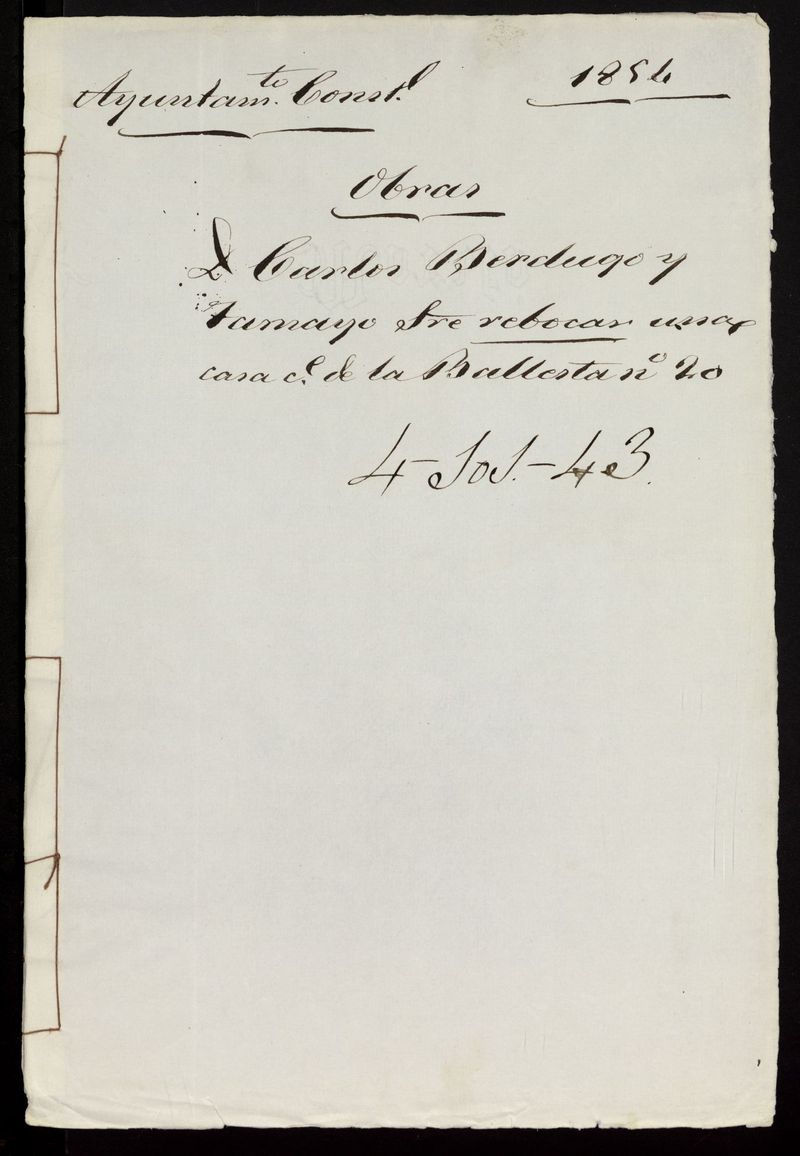 Ayuntam.te Const.l
1854
Obras
D Carlos Berdugo y
Tamayo Sre rebocar una
casa c.e de la Ballesta nº 20
4-101.-43.